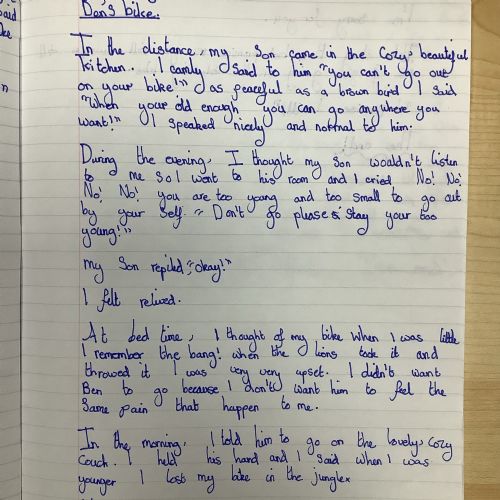 Ben's bike.
In the distance, my son came in the cozy, beautiful
kitchen. I camly said to him "you can't go out
on your bike!" as peaceful as a brown bird I said
"When your old enough you can go anywhere you
want!" I speaked nicely and normal to him.
During the evening, I thought my son wouldn't listen
to me so I went to his room and I cried No! No!
No! No! you are too young and too small to go out
by your self. "Don't go please stay your too
young!"
my son replied, "okay!"
I felt relived.
At bed time, I thought of my bike when I was little
I remember the bang! when the lions took it and
throwed it I was very very upset. I didn't want
Ben to go because I don't want him to feel the
same pain that happen to me.
In the morning, I told him to go on the lovely, cozy
couch. I held his hand and I said when I was
younger I lost my bike in the jungle